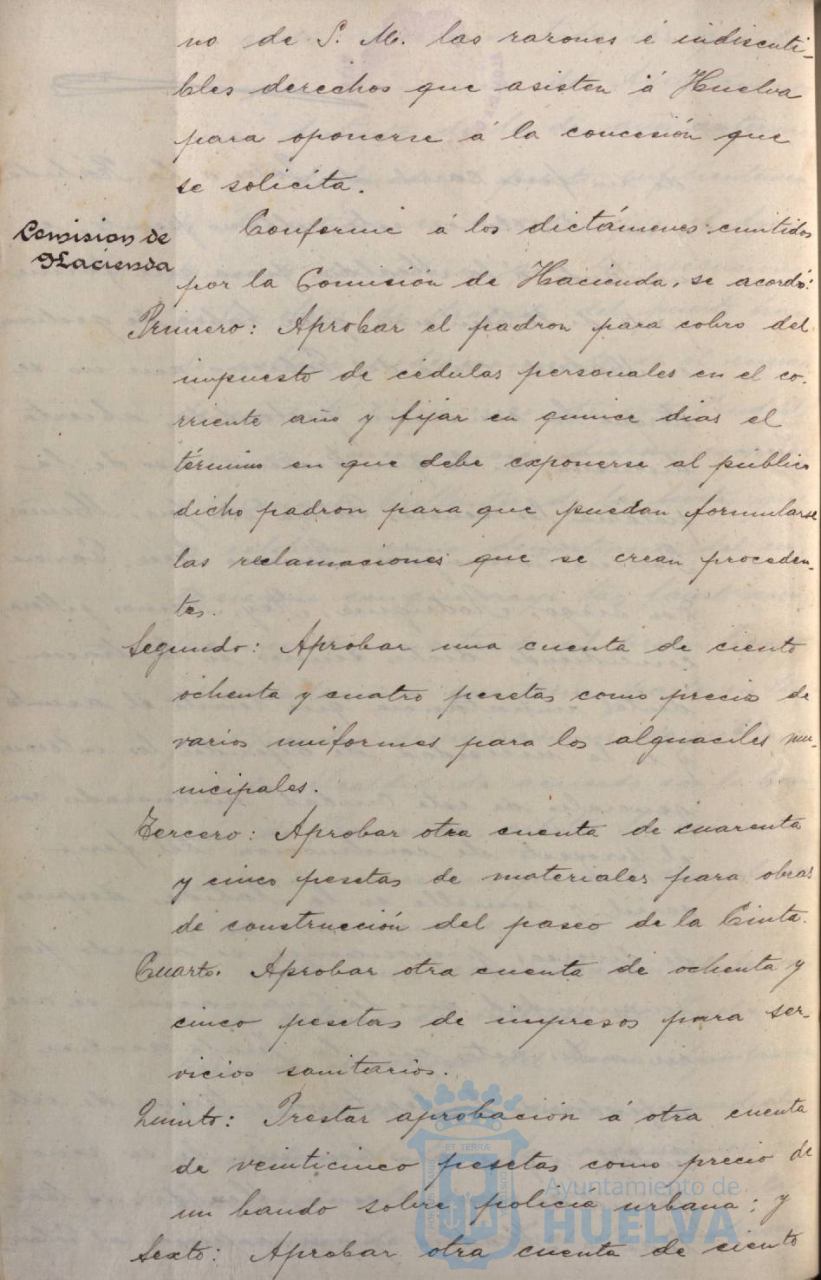 no de S. M. las razones é indiscuti-
bles derechos que asisten á Huelva
para oponerse á la concesión que
se solicita.
Comision de
Hacienda
Conforme á los dictámenes emitidos
por la Comisión de Hacienda, se acordó:
Primero: Aprobar el padron para cobro del
impuesto de cédulas personales en el co-
rriente año y fijar en quince dias el
término en que debe exponerse al público
dicho padron para que puedan formularse
las reclamaciones que se crean proceden-
tes.
Segundo: Aprobar una cuenta de ciento
ochenta y cuatro pesetas como precio de
varios uniformes para los alguaciles mu-
nicipales.
Tercero: Aprobar otra cuenta de cuarenta
y cinco pesetas de materiales para obras
de construcción del paseo de la Cinta.
Cuarto. Aprobar otra cuenta de ochenta y
cinco pesetas de impresos para ser-
vicios sanitarios.
Quinto: Prestar aprobación á otra cuenta
de veinticinco pesetas como precio de
un bando sobre policia urbana; y
Sexto: Aprobar otra cuenta de ciento
Ayuntamiento de
HUELVA